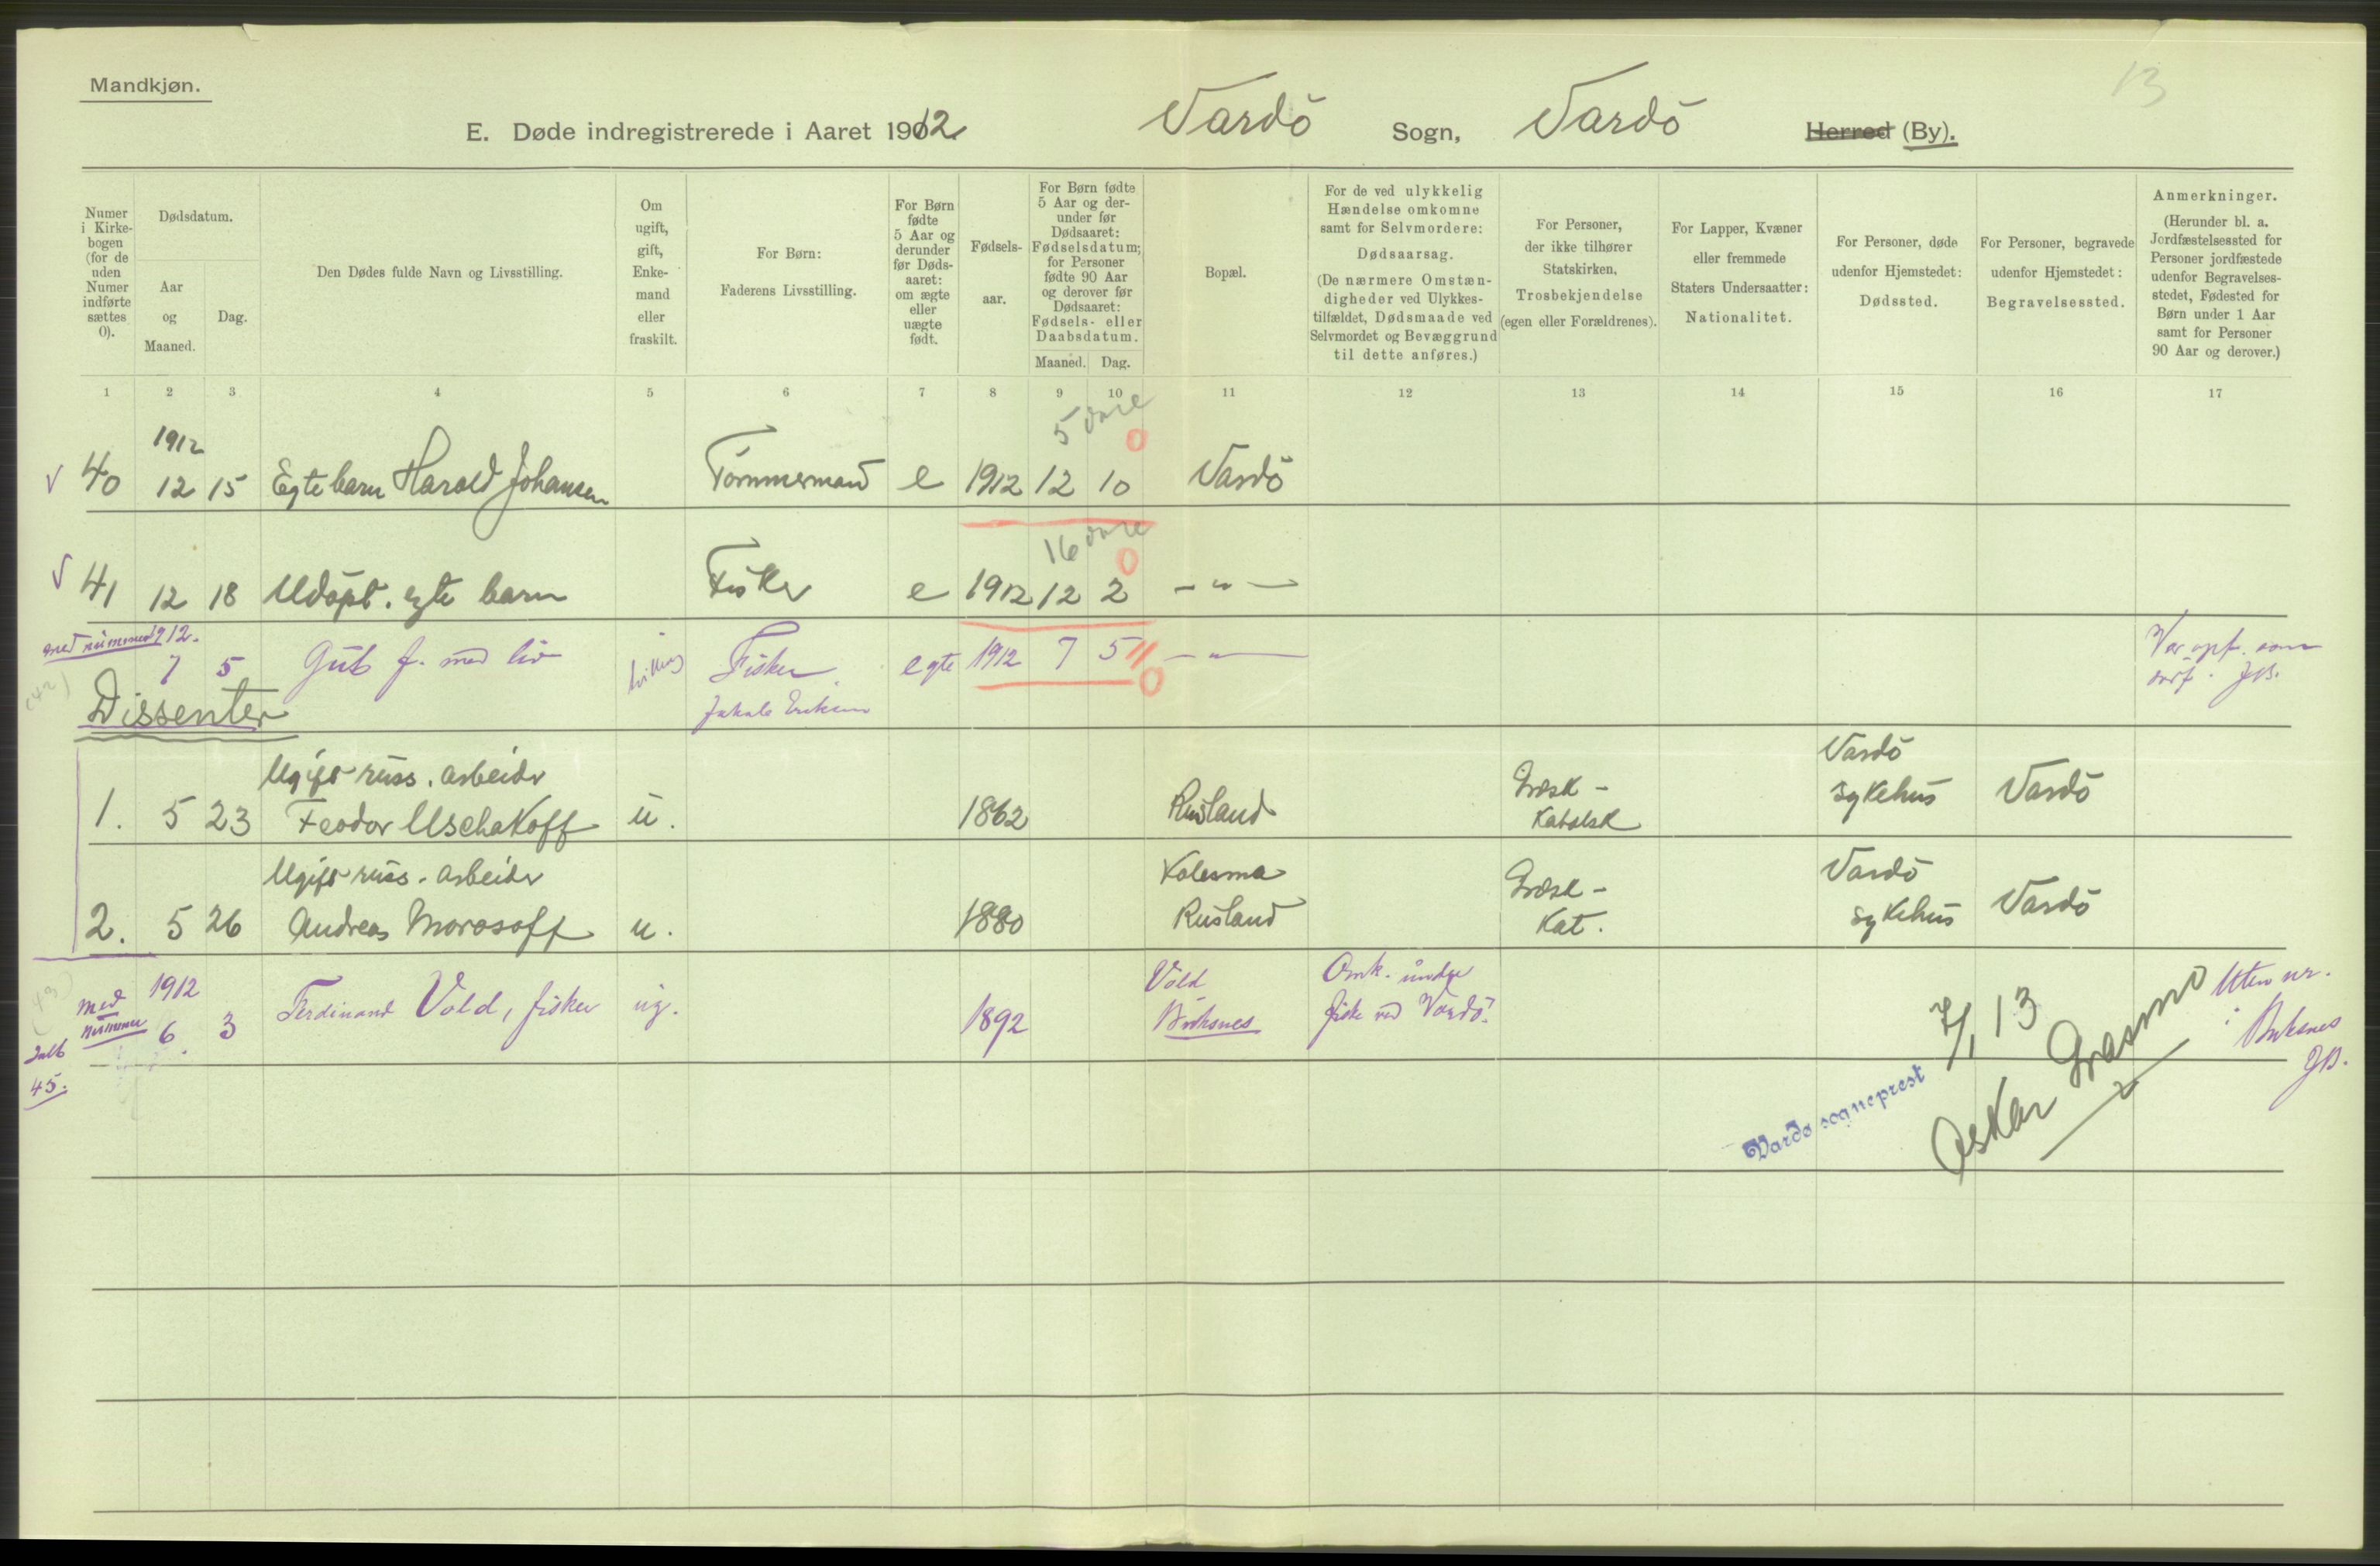 Mandkjøn.
13
E. Døde indregistrerede i Aaret 1912 Vardö Sogn, Vardö Herred (By).
Numer i Kirkebogen (for de uden Numer indførte sættes 0).
Dødsdatum.
Aar og Maaned.
Dag.
Den Dødes fulde Navn og Livsstilling.
Om ugift, gift, Enkemand eller fraskilt.
For Børn: Faderens Livsstilling.
For Børn fødte 5 Aar og derunder før Dødsaaret: om ægte eller uægte født.
Fødselsaar.
For Børn fødte 5 Aar og derunder før Dødsaaret: Fødselsdatum; for Personer fødte 90 Aar og derover før Dødsaaret: Fødsels- eller Daabsdatum.
Maaned. Dag.
Bopæl.
For de ved ulykkelig Hændelse omkomne samt for Selvmordere: Dødsaarsag. (De nærmere Omstændigheder ved Ulykkestilfældet, Dødsmaade ved Selvmordet og Bevæggrund til dette anføres.)
For Personer, der ikke tilhører Statskirken, Trosbekjendelse (egen eller Forældrenes).
For Lapper, Kvæner eller fremmede Staters Undersaatter: Nationalitet.
For Personer, døde udenfor Hjemstedet: Dødssted.
For Personer, begravede udenfor Hjemstedet: Begravelsessted.
Anmerkninger. (Herunder bl. a. Jordfæstelsessted for Personer jordfæstede udenfor Begravelsesstedet, Fødested for Børn under 1 Aar samt for Personer 90 Aar og derover.)
1 2 3 4 5 6 7 8 9 10 11 12 13 14 15 16 17
1912 5 0
40 12 15 Egte barn Harald Johansen Tömmermand e 1912 12 10 Vardö
16 0
41 12 18 Udöpt. egte barn Fisker e 1912 12 2 - " -
1912.
7 5 Gut f. med liv tvilling Fisker egte 1912 7 5 0 - " - Var opf. som
Dissenter
Ugift russ. arbeider Vardö
1. 5 23 Feodor Uschakoff u. 1862 Rusland Græsk-Katolsk sykehus Vardö
Ugift russ. arbeider Kolesma Vardö
2. 5 26 Andreas Morosoff u. 1880 Rusland Græsk-Kat. sykehus Vardö
med nummer 1912 Vold Omk. under Uten nr.
6 3 Ferdinand Vold, fisker ug. 1892 Buksnes fiske ved Vardö. i Buksnes
JB.
45.
7/1 13
Vardø sogneprest
Oskar